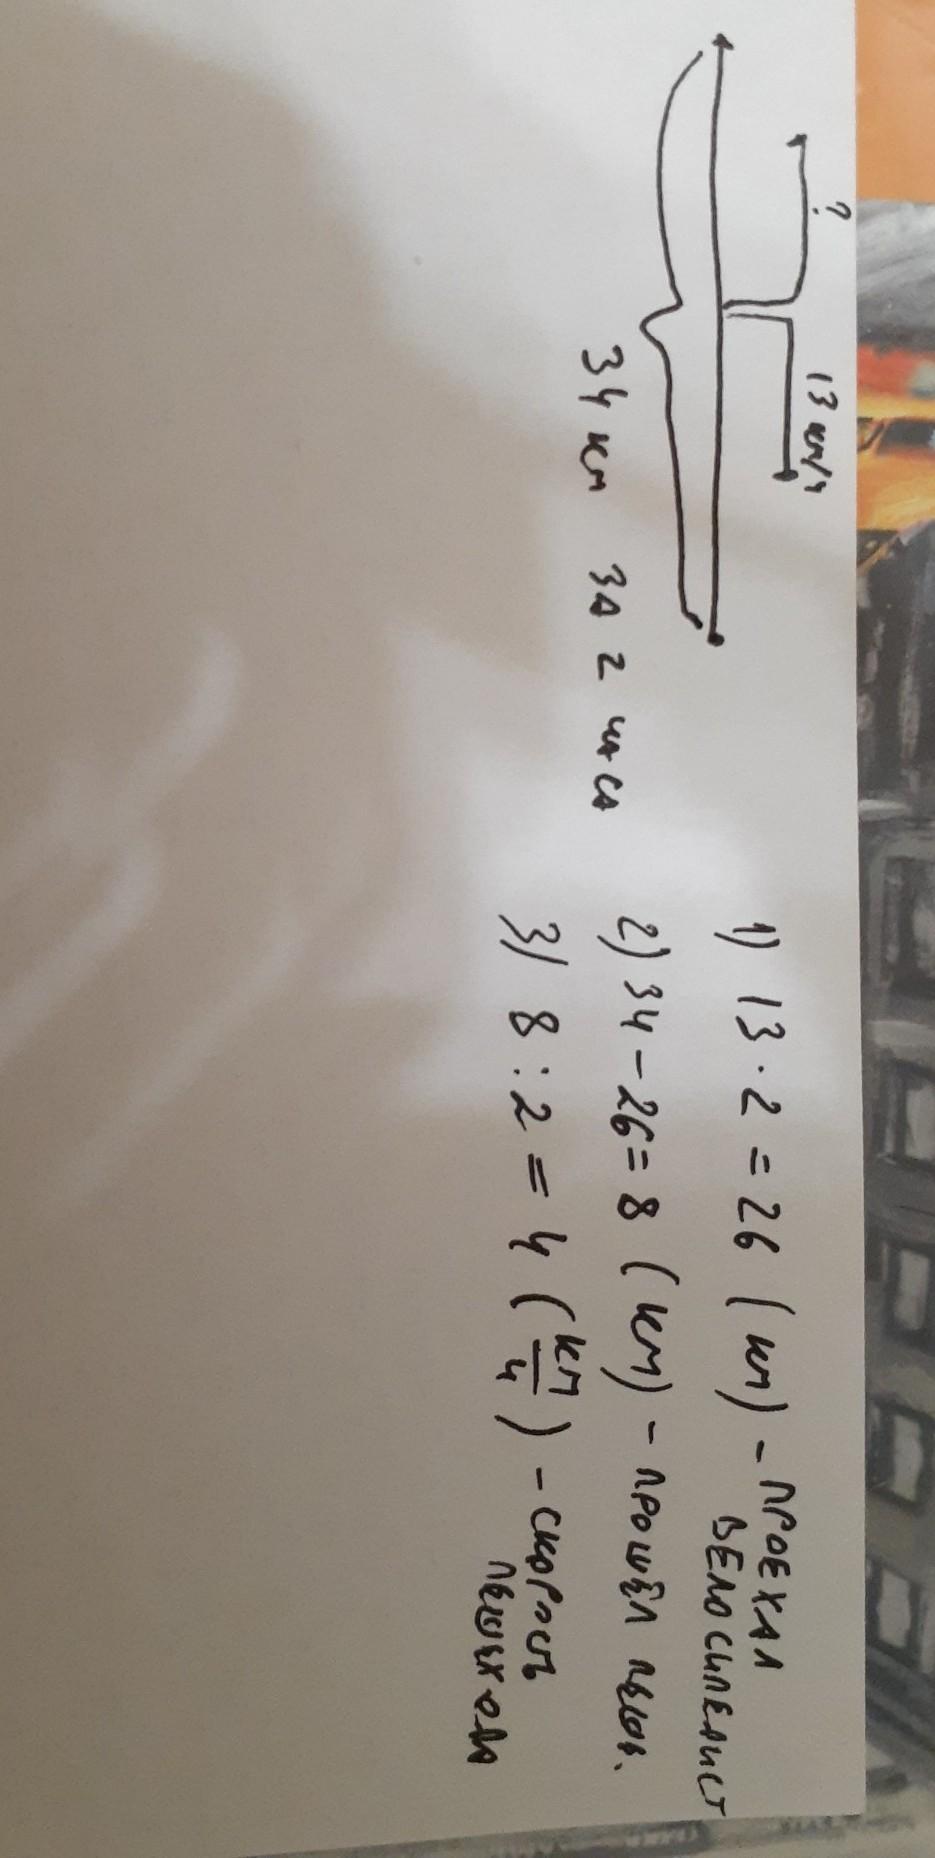 ? 13 км/ч
34 км за 2 часа
1) 13 · 2 = 26 (км) - ПРОЕХАЛ
ВЕЛОСИПЕДИСТ
2) 34 - 26 = 8 (км) - ПРОШЁЛ ПЕШ.
3) 8 : 2 = 4 (км/ч) - СКОРОСТЬ
ПЕШЕХОДА